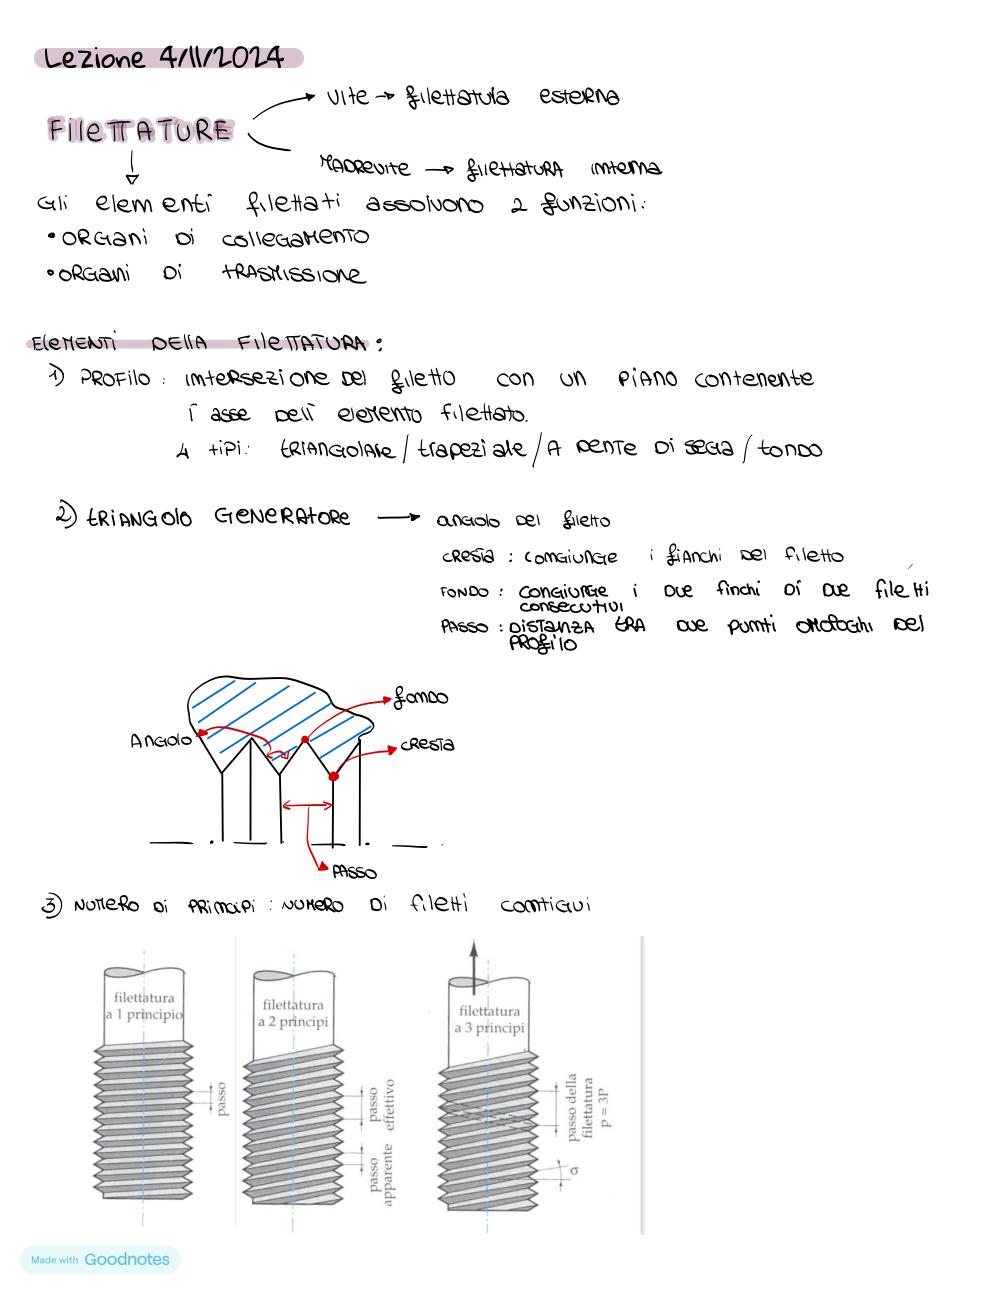 Lezione 4/11/2024
VITE → filettatura esterna
FILETTATURE
MADREVITE → filettatura interna
Gli elementi filettati assolvono 2 funzioni:
• ORGANI DI COLLEGAMENTO
• ORGANI DI TRASMISSIONE
ELEMENTI DELLA FILETTATURA:
1) PROFILO: intersezione del filetto con un piano contenente
l'asse dell'elemento filettato.
4 tipi: TRIANGOLARE / trapeziale / A DENTE DI SEGA / tondo
2) TRIANGOLO GENERATORE → angolo del filetto
CRESTA: congiunge i fianchi del filetto
FONDO: congiunge i due finchi di due filetti
consecutivi
PASSO: DISTANZA TRA due punti omologhi del
PROfilo
fondo
Angolo
cresta
PASSO
3) NUMERO DI PRINCIPI: NUMERO DI filetti contigui
filettatura
a 1 principio
filettatura
a 2 principi
filettatura
a 3 principi
passo
passo
effettivo
passo
apparente
passo della
filettatura
p = 3P
σ
Made with Goodnotes